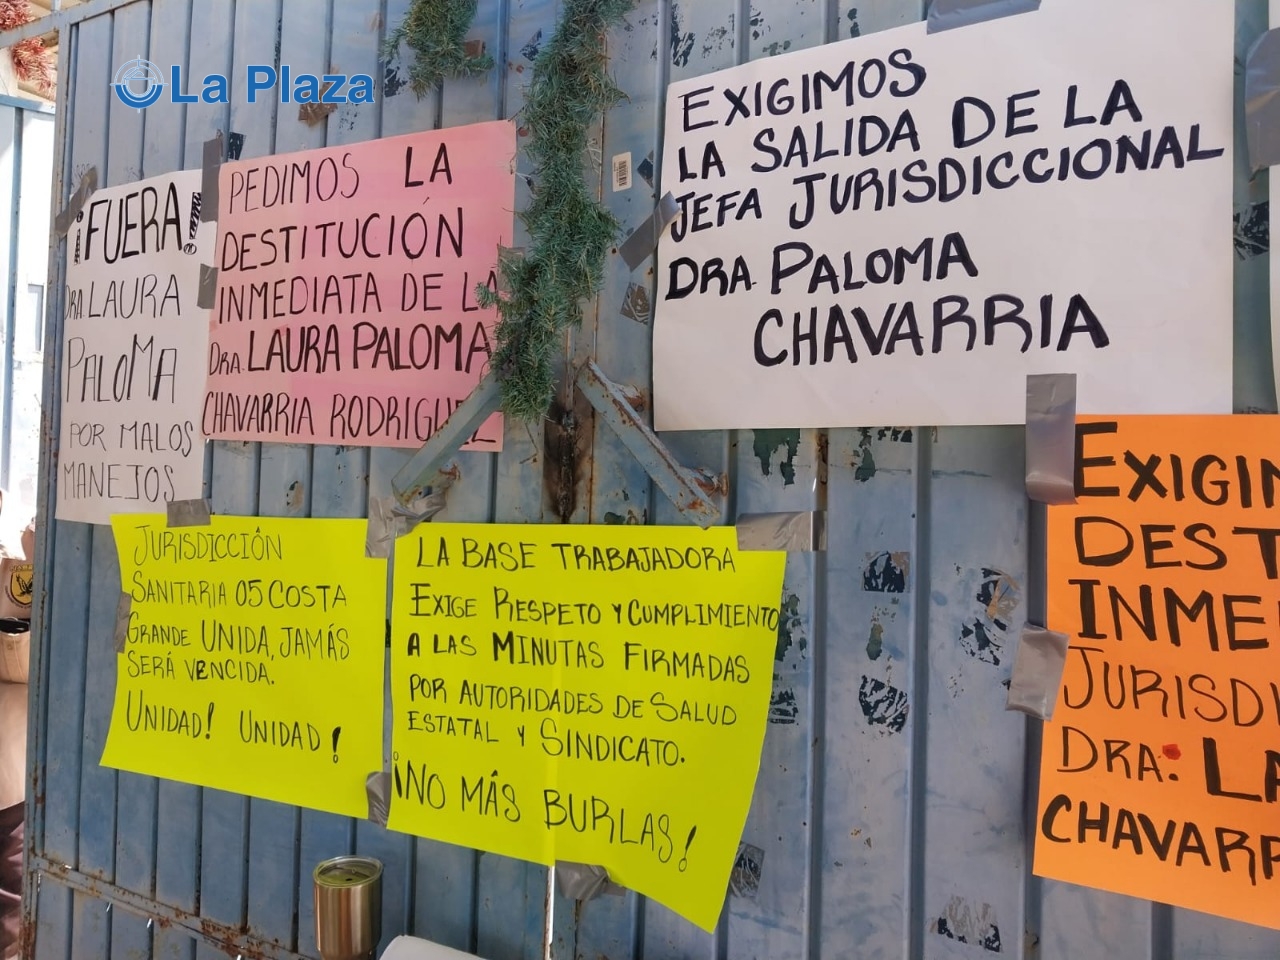 La Plaza
¡FUERA!
DRA. LAURA
PALOMA
POR MALOS
MANEJOS
PEDIMOS LA
DESTITUCIÓN
INMEDIATA DE LA
DRA. LAURA PALOMA
CHAVARRIA RODRIGUEZ
EXIGIMOS
LA SALIDA DE LA
JEFA JURISDICCIONAL
DRA. PALOMA
CHAVARRIA
JURISDICCIÓN
SANITARIA 05 COSTA
GRANDE UNIDA, JAMÁS
SERÁ VENCIDA.
UNIDAD! UNIDAD!
LA BASE TRABAJADORA
EXIGE RESPETO Y CUMPLIMIENTO
A LAS MINUTAS FIRMADAS
POR AUTORIDADES DE SALUD
ESTATAL Y SINDICATO.
¡NO MÁS BURLAS!
EXIGI
DEST
INME
JURISDI
DRA. LA
CHAVARR